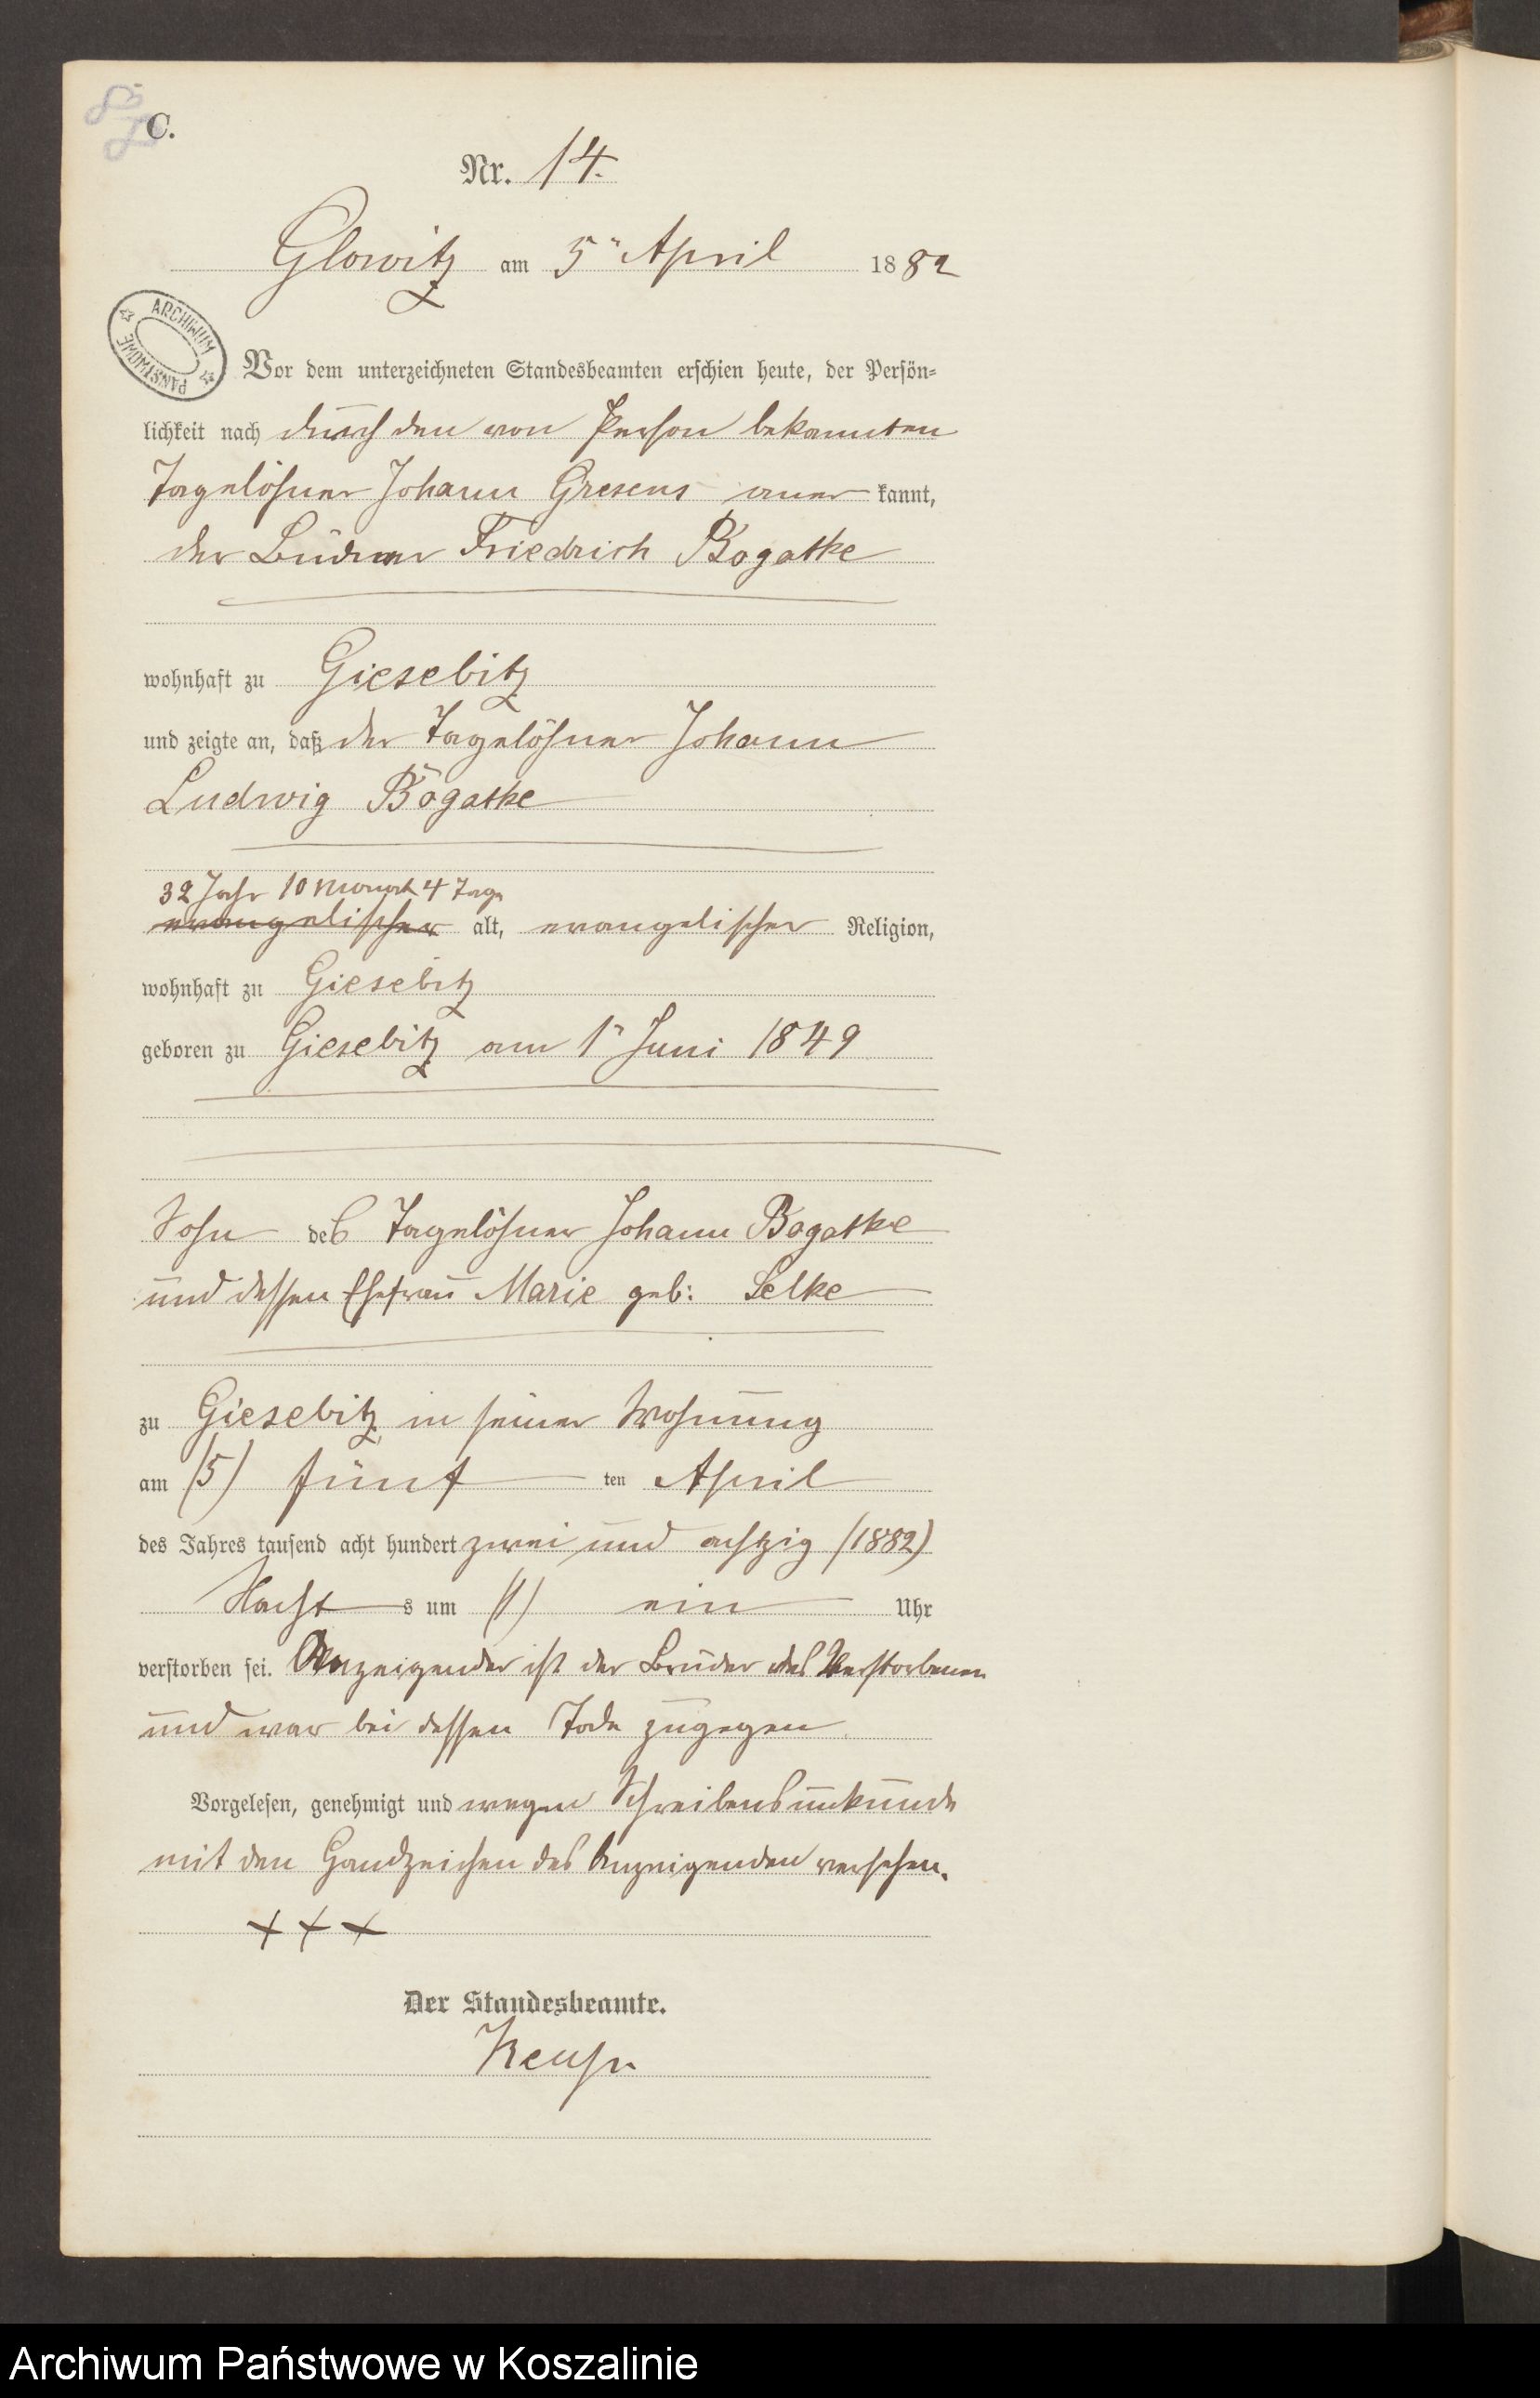 C.
Nr. 14.
Glowitz am 5" April 1882
ARCHIWUM PAŃSTWOWE
Vor dem unterzeichneten Standesbeamten erschien heute, der Persön-
lichkeit nach durch den von Person bekannten
Tagelöhner Johann Gresens aner kannt,
der Büdner Friedrich Bogatke
wohnhaft zu Giesebitz
und zeigte an, daß der Tagelöhner Johann
Ludwig Bogatke
32 Jahr 10 Monat 4 Tage
evangelischer alt, evangelischer Religion,
wohnhaft zu Giesebitz
geboren zu Giesebitz am 1" Juni 1849
Sohn des Tagelöhner Johann Bogatke
und dessen Ehefrau Marie geb: Selke
zu Giesebitz in seiner Wohnung
am (5) fünf ten April
des Jahres tausend acht hundert zwei und achtzig (1882)
Nacht s um (1) ein Uhr
verstorben sei. Anzeigender ist der Bruder des Verstorbenen
und war bei dessen Tode zugegen
Vorgelesen, genehmigt und wegen Schreibensunkunde
mit den Handzeichen des Anzeigenden versehen.
+++
Der Standesbeamte.
Archiwum Państwowe w Koszalinie